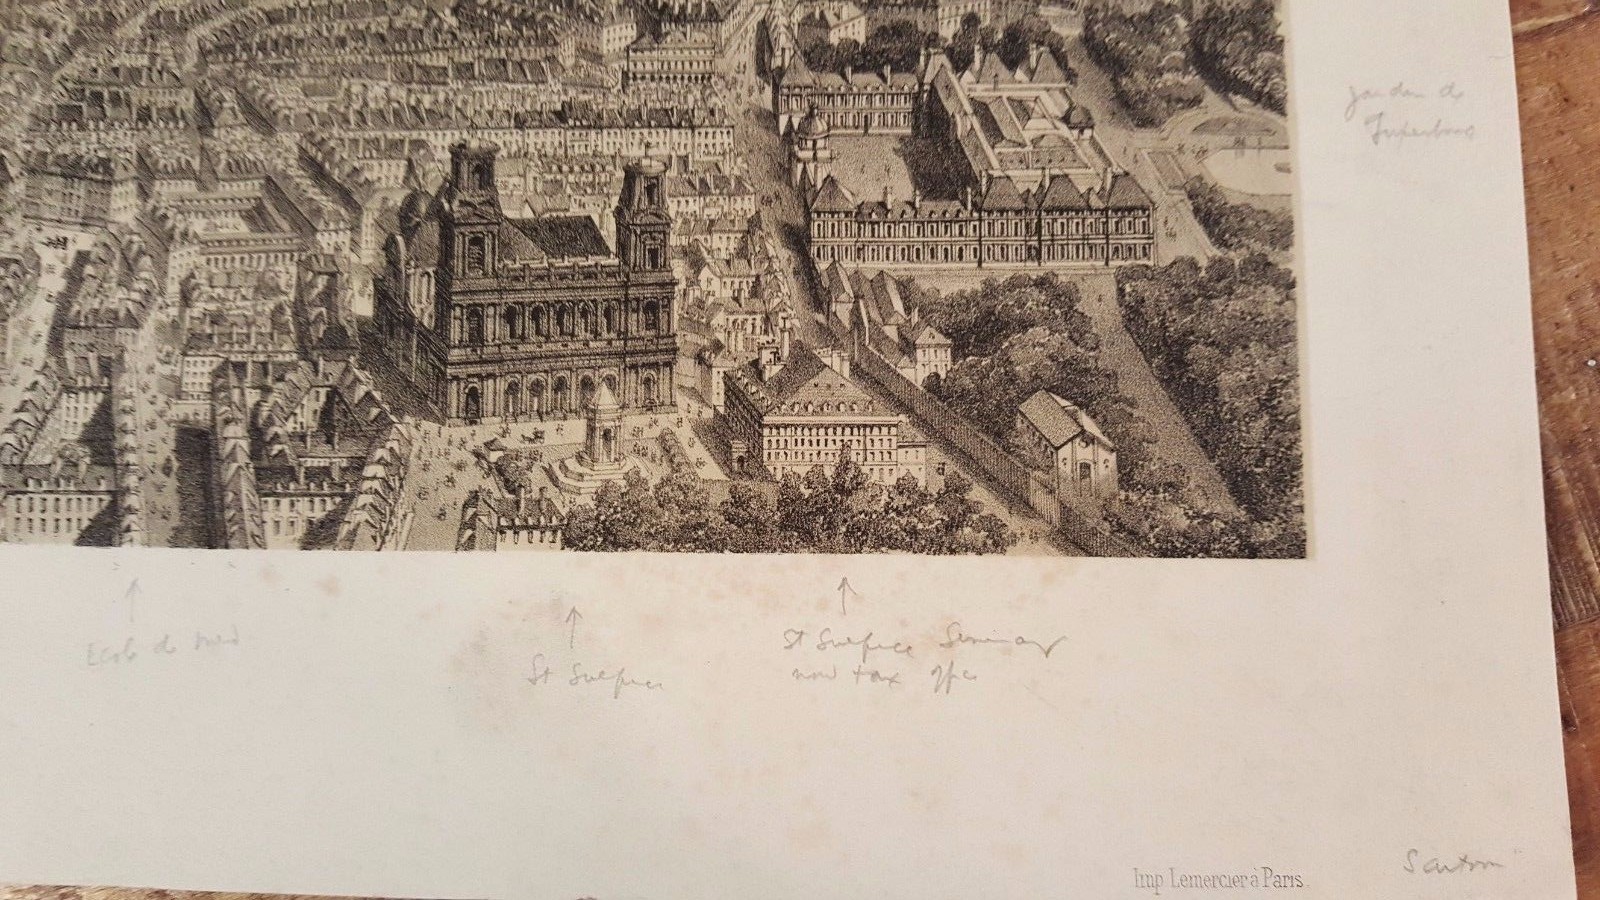 Jardin de
Ecole de Med
St Sulpice
St Sulpice Seminary
now tax office
Imp Lemercier à Paris.